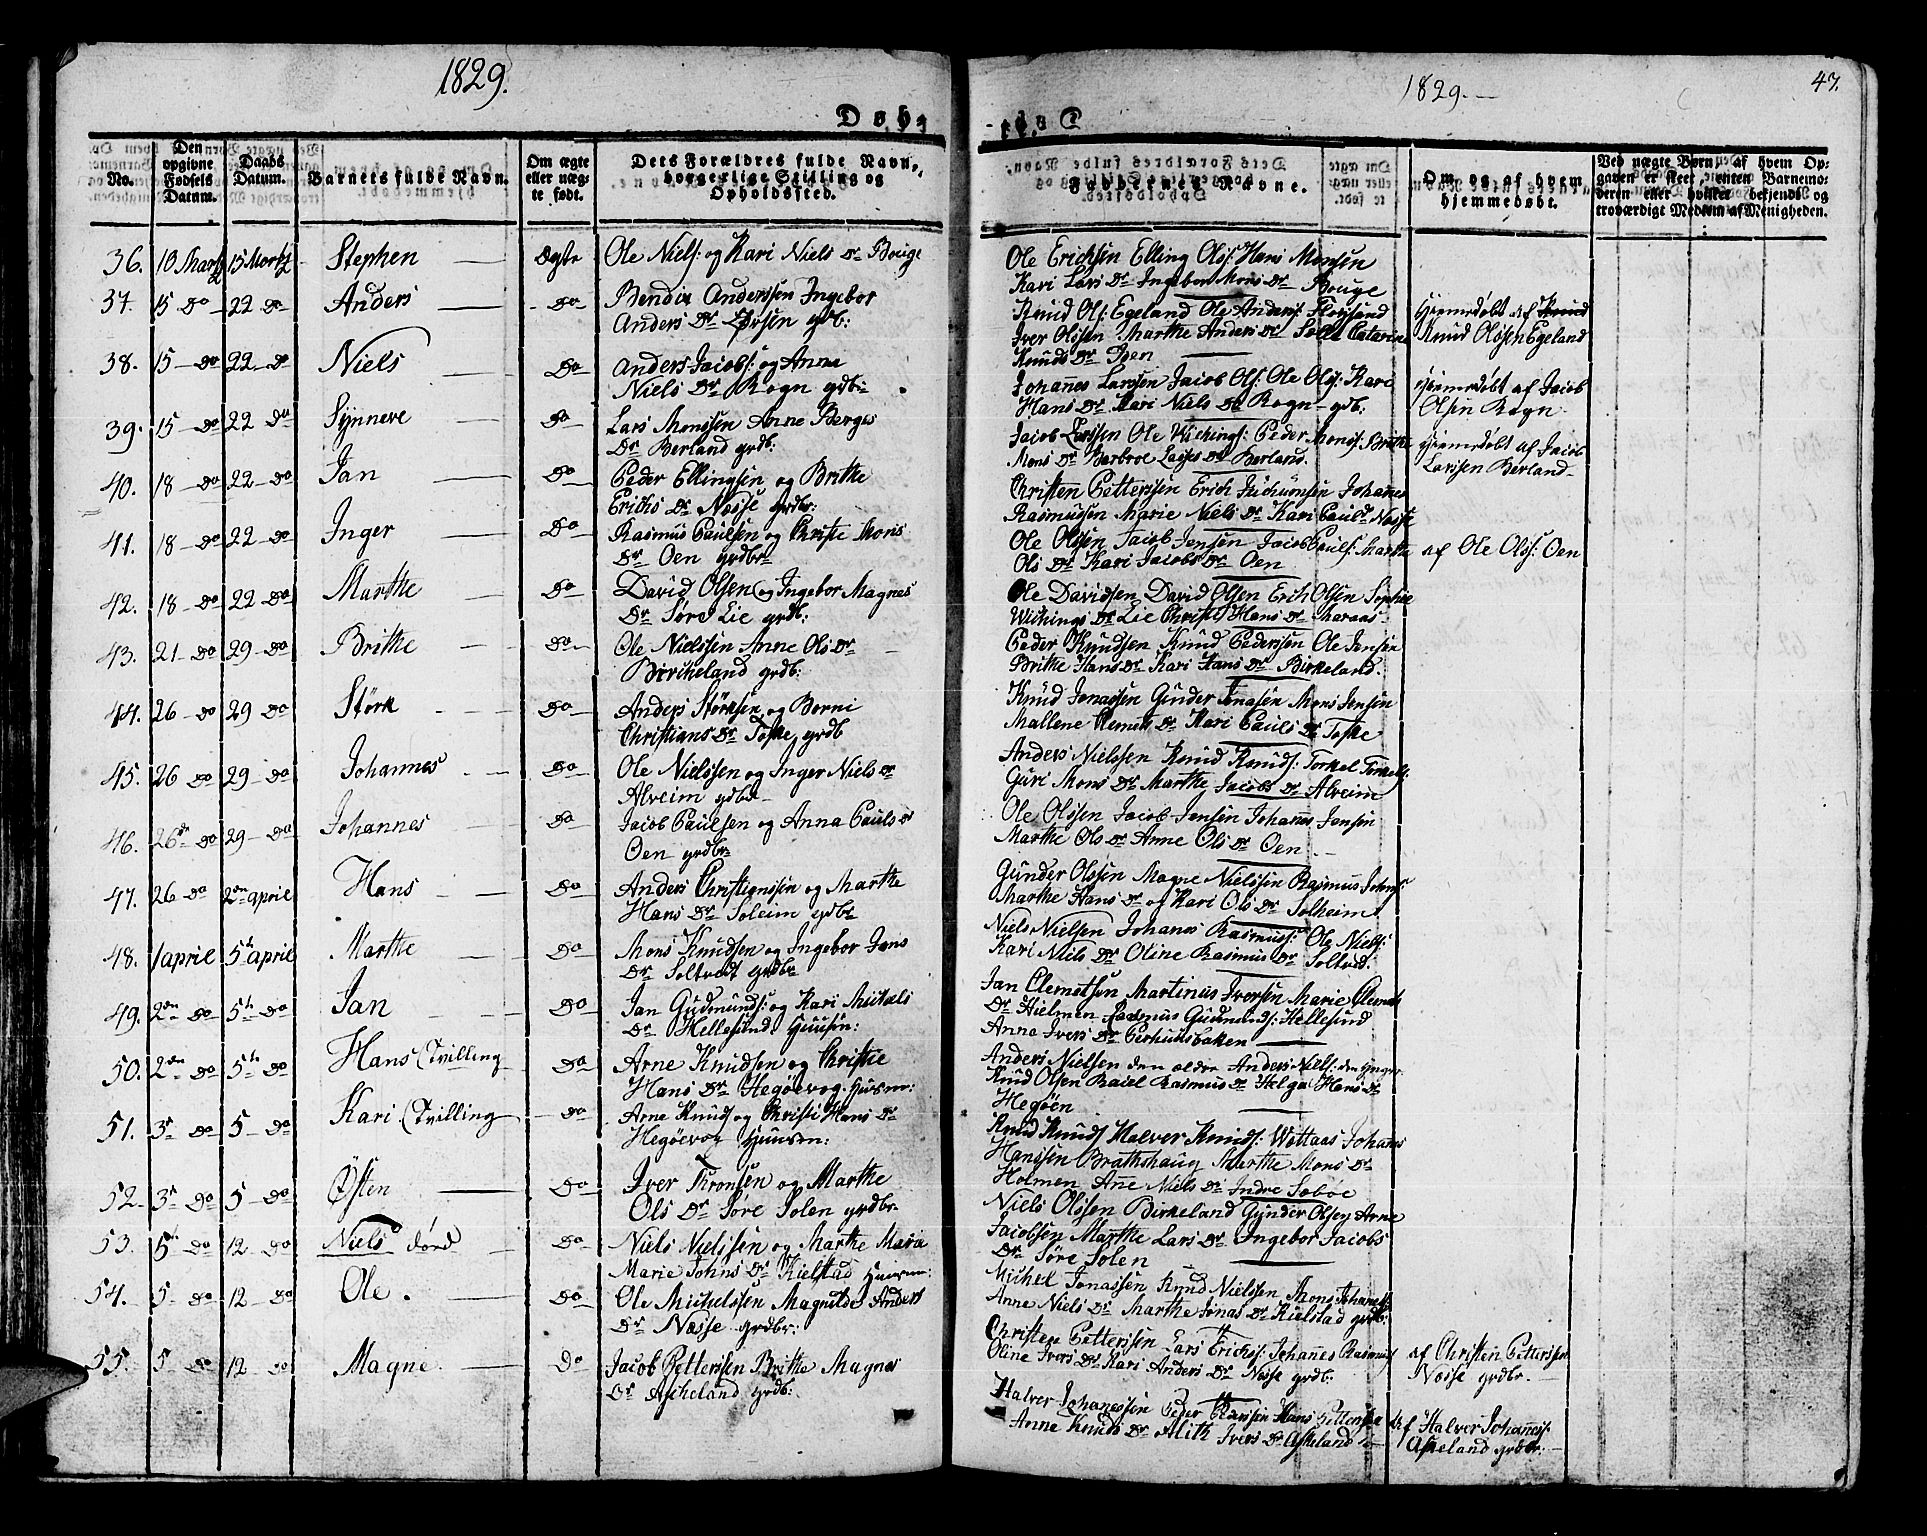 1829.
Døb-
No.
Den opgivne Fødsels Datum.
Daabs Datum.
Barnets fulde Navn.
Om ægte eller uægte født.
Dets Forældres fulde Navn, borgerlige Stilling og Opholdsted.
36. 10 Martz 15 Martz Stephen Ægte Ole Niels: og Kari Niels Dr Bouge
37. 15 Do 22 Do Anders Do Bendix Anderssen Ingebor
Anders Dr grdb:
38. 15 Do 22 Do Niels Do Anders Jacobs: og Anne
Niels Dr Rogn grdb:
39. 15 Do 22 Do Synneve Do Lars Monssen Anne Berges
Dr Berland grdb:
40. 18 Do 22 Do Jan Do Peder Ellingsen og Brithe
Erichs Dr Nøsse grdbr:
41. 18 Do 22 Do Inger Do Rasmus Paulsen og Christe Mons
Dr Oen grdbr
42. 18 Do 22 Do Marthe Do David Olsen og Ingebor Magnes
Dr Søre Lie grdb:
43. 21 Do 29 Do Brithe Do Ole Nielssen Anne Ols Dr
Birkeland grdb:
44. 26 Do 29 Do Størk Do Anders Størksen og Borni
Christians Dr Toske grdb
45. 26 Do 29 Do Johannes Do Ole Nielssen og Inger Niels Dr
Alveim gdbr
46. 26de Do 29 Do Johannes Do Jacob Paulsen og Anna Pauls Dr
Oen grdbr
47. 26 Do 2den april Hans Do Anders Christianssen og Marthe
Hans Dr Soleim grdbr
48. 1 april 5te april Marthe Do Mons Knudsen og Ingebor Jans
Dr Soltvedt grdbr
49. 2den Do 5te Do Jan Do Jan Gudmunds: og Kari Michels
Dr Hellesund Huusm:
50. 2den Do 5te Do Hans (Tvilling Do Arne Knudsen og Christie
Hans Dr Hegøevog Huusm:
51. 3die Do 5 Do Kari (Tvilling Do Arne Knuds og Christi Hans Dr
Hegøevog Huusm:
52. 3die Do 5 Do Østen Do Iver Tronsen og Marthe
Ols Dr Søre Solen grdbr
53. 5te Do 12 Do Niels død Do Niels Nielssen og Marthe Maria
Marie Johns Dr Kielstad Huusm:
54. 5 Do 12 Do Ole. Do Ole Michelssen Magnilde Anders
Dr Nøsse grdbr:
55. 5 Do 12 Do Magne Do Jacob Petterssen Brithe Magnes
Dr Askeland grdb:
1829.
47.
Faddernes Navne.
Om og af hvem hjemmedøbt.
Ved uægte Børn, af hvem Opgaven er skeet, enten Barnemoderen eller hvilket bekjendt og troværdigt Medlem af Menigheden.
Ole Erichsen Elling Ols: Hans Monsen
Kari Lars Dr Ingebor Mons Dr Bouge
Knud Ols: Egeland Ole Anders: Flolsand Hiemedøbt af
Iver Olssen Marthe Anders Dr Catarine Knud Olssen Egeland
Knuds Dr
Johanes Larssen Jacob Ols: Ole Ols: Kari Hiemedøbt af Jacob
Hans Dr Kari Niels Dr Rogn grdb: Olsen Rogn
Jacob Larssen Ole Wichings: Peder Mons: Brithe Hiemedøbt af Jacob
Mons Dr Barbroe Lasses Dr Berland. Larssen Berland
Christen Petterssen Erich Johannes
Rasmussen Marie Niels Dr Kari Pauls Dr Nøsse
Ole Olssen Jacob Jensen Jacob Pauls: Marthe af Ole Ols: Oen
Ols Dr Kari Jacobs Dr Oen
Ole Davidsen David Olsen Erich Olsen Sophie
Wichings Dr Lie Christi Hans Dr Maraas
Peder Knudsen Knud Pederssen Ole Jensen
Brithe Hans Dr Kari Hans Dr Birkeland.
Knud Jonassen Gunder Jonasen Mons Jensen
Mallene Clemets Dr Kari Pauls Dr Toske
Anders Nielssen Knud Knuds: Torkel Torkels:
Guri Mons Dr Marthe Jacobs Dr Alveim
Ole Olssen Jacob Jensen Johanes Jensen
Marthe Ols Dr Anne Ols Dr Oen
Gunder Olssen Magne Nielssen Rasmus Johns
Marthe Hans Dr og Kari Ols Dr Solheim
Niels Nielsen Johanes Rasmuss: Ole Niels:
Kari Niels Dr Oline Rasmus Dr Soltved.
Jan Clemetsen Martinus Iversen Marie Clemets
Dr Hielmen Rasmus Gudmunds: Hellesund
Anna Ivers Dr
Anders Nielsen den eldre Anders Niels: den Yngre
Knud Olsen Raiel Rasmus Dr Helga Hans Dr
Hegøen
Knud Knuds Halver Knuds: Wottaas Johanes
Hanssen Brathshaug Marthe Mons Dr
Holmen Ane Niels Dr Indre Sæbøe
Niels Olssen Birkeland Gunder Olsen Arne
Jacobsen Marthe Lars Dr Ingebor Jacobs
Dr Søre Solen
Michel Jonassen Knud Nielssen Mons Johanes
Anne Niels Dr Marthe Jonas Dr Kielstad grdb:
Christen Petterssen Lars Erichs: Johanes Rasmus af Christen Petterssen
Oline Ivers Dr Kari Anders Dr Nøsse grdbr. Nøsse grdbr.
Halver Johanessen Peder Hans Petterssen af Halver Johanes:
Anne Knuds Dr Alith Ivers Dr Askeland Askeland grdbr: